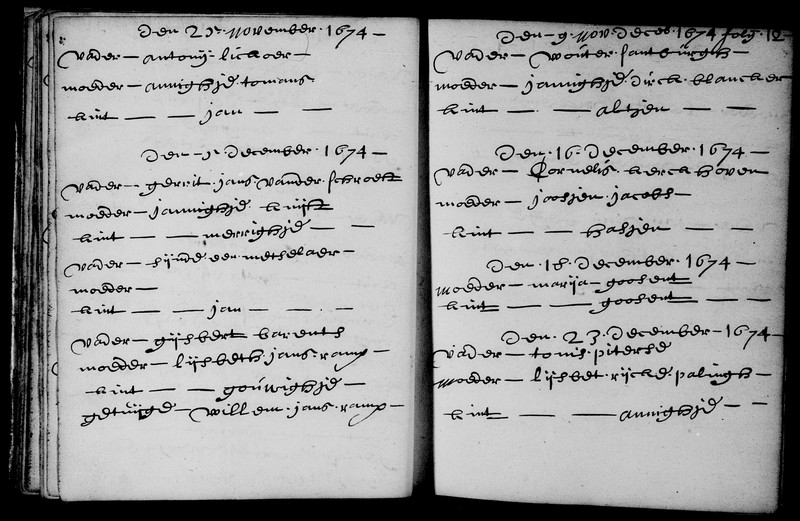 Den 25. November. 1674 —
Vader — antonij. lickoer —
moeder — annighje tomans
kint — — jan — —
Den 2. December. 1674 —
Vader — gerrit. jans. vander. schroeff
moeder — jannighje kuijff
kint — — merrighje — —
Vader — sijnde een metselaer —
moeder —
kint — — jan — — —
Vader — gijsbert barents
moeder — lijsbeth jans. ramp —
kint — — gouwighje —
getuijge — Willem. jans. ramp —
Den 9. Deces. 1674 folij. 12
Vader — wouter santburgh —
moeder — jannighje. dirck. blancker
kint — — altjen — —
Den 16. December. 1674 —
Vader — Cornelis. kerckhoven
moeder — joosjen. jacobs —
kint — — hasjen — —
Den. 18. December. 1674 —
moeder — marija — goosent
kint — — goosent — —
Den. 23. December — 1674 —
Vader — tonis. pitersse
Moeder — lijsbet. rijcke. palingh —
kint — — annighje — —